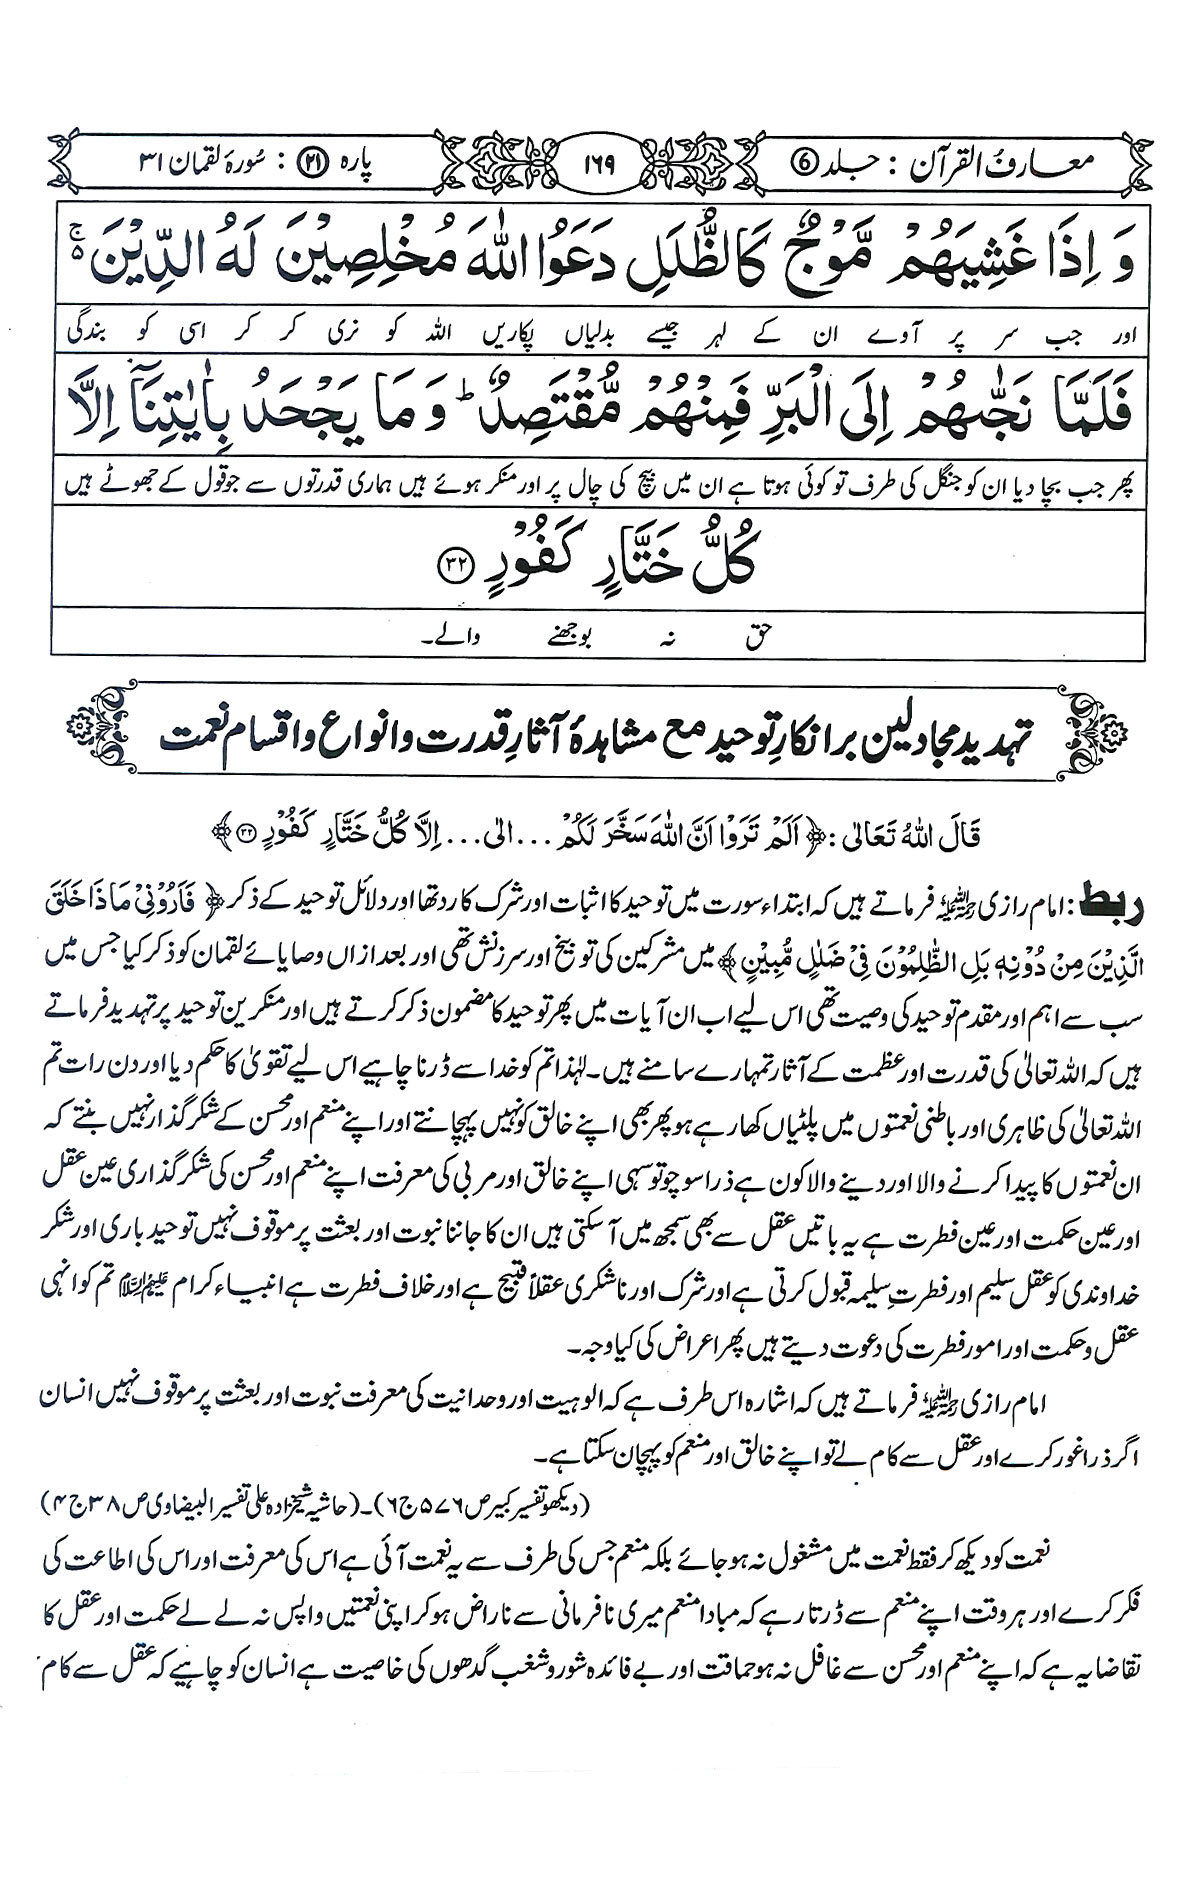 معارف القرآن : جلد 6
۱۶۹
پارہ ۲۱ : سُورۂ لقمان ۳۱
وَ اِذَا غَشِیَهُمْ مَّوْجٌ کَالظُّلَلِ دَعَوُا اللّٰهَ مُخْلِصِیْنَ لَهُ الدِّیْنَ ۚ۬
اور جب سر پر آوے ان کے لہر جیسے بدلیاں پکاریں اللہ کو نری کر کر اسی کو بندگی
فَلَمَّا نَجّٰىهُمْ اِلَی الْبَرِّ فَمِنْهُمْ مُّقْتَصِدٌ ؕ وَ مَا یَجْحَدُ بِاٰیٰتِنَاۤ اِلَّا
پھر جب بچا دیا ان کو جنگل کی طرف تو کوئی ہوتا ہے ان میں بیچ کی چال پر اور منکر ہوئے ہیں ہماری قدرتوں سے جو قول کے جھوٹے ہیں
کُلُّ خَتَّارٍ کَفُوْرٍ ۳۲
حق نہ بوجھنے والے۔
تہدید مجادلین بر انکارِ توحید مع مشاہدۂ آثارِ قدرت و انواع و اقسام نعمت
قَالَ اللهُ تَعَالٰی : ﴿اَلَمْ تَرَوْا اَنَّ اللّٰهَ سَخَّرَ لَکُمْ ... الی ... اِلَّا کُلُّ خَتَّارٍ کَفُوْرٍ ۳۲﴾
ربط: امام رازی رحمہ اللہ فرماتے ہیں کہ ابتداء سورت میں توحید کا اثبات اور شرک کا رد تھا اور دلائل توحید کے ذکر ﴿فَاَرُوْنِیْ مَاذَا خَلَقَ
الَّذِیْنَ مِنْ دُوْنِهٖ بَلِ الظّٰلِمُوْنَ فِیْ ضَلٰلٍ مُّبِیْنٍ﴾ میں مشرکین کی توبیخ اور سرزنش تھی اور بعد ازاں وصایائے لقمان کو ذکر کیا جس میں
سب سے اہم اور مقدم توحید کی وصیت تھی اس لیے اب ان آیات میں پھر توحید کا مضمون ذکر کرتے ہیں اور منکرین توحید پر تہدید فرماتے
ہیں کہ اللہ تعالیٰ کی قدرت اور عظمت کے آثار تمہارے سامنے ہیں۔ لہٰذا تم کو خدا سے ڈرنا چاہیے اس لیے تقویٰ کا حکم دیا اور دن رات تم
اللہ تعالیٰ کی ظاہری اور باطنی نعمتوں میں پلٹیاں کھا رہے ہو پھر بھی اپنے خالق کو نہیں پہچانتے اور اپنے منعم اور محسن کے شکر گذار نہیں بنتے کہ
ان نعمتوں کا پیدا کرنے والا اور دینے والا کون ہے ذرا سوچو تو سہی اپنے خالق اور مربی کی معرفت اپنے منعم اور محسن کی شکر گذاری عین عقل
اور عین حکمت اور عین فطرت ہے یہ باتیں عقل سے بھی سمجھ میں آسکتی ہیں ان کا جاننا نبوت اور بعثت پر موقوف نہیں توحید باری اور شکر
خداوندی کو عقل سلیم اور فطرتِ سلیمہ قبول کرتی ہے اور شرک اور ناشکری عقلاً قبیح ہے اور خلاف فطرت ہے انبیاء کرام علیہم السلام تم کو انہی
عقل و حکمت اور امور فطرت کی دعوت دیتے ہیں پھر اعراض کی کیا وجہ۔
امام رازی رحمہ اللہ فرماتے ہیں کہ اشارہ اس طرف ہے کہ الوہیت اور وحدانیت کی معرفت نبوت اور بعثت پر موقوف نہیں انسان
اگر ذرا غور کرے اور عقل سے کام لے تو اپنے خالق اور منعم کو پہچان سکتا ہے۔
(دیکھو تفسیر کبیر ص ۵۷۶ ج ۶)۔ (حاشیہ شیخ زادہ علی تفسیر البیضاوی ص ۳۸ ج ۴)
نعمت کو دیکھ کر فقط نعمت میں مشغول نہ ہو جائے بلکہ منعم جس کی طرف سے یہ نعمت آئی ہے اس کی معرفت اور اس کی اطاعت کی
فکر کرے اور ہر وقت اپنے منعم سے ڈرتا رہے کہ مبادا منعم میری نافرمانی سے ناراض ہو کر اپنی نعمتیں واپس نہ لے لے حکمت اور عقل کا
تقاضا یہ ہے کہ اپنے منعم اور محسن سے غافل نہ ہو حماقت اور بے فائدہ شور و شغب گدھوں کی خاصیت ہے انسان کو چاہیے کہ عقل سے کام